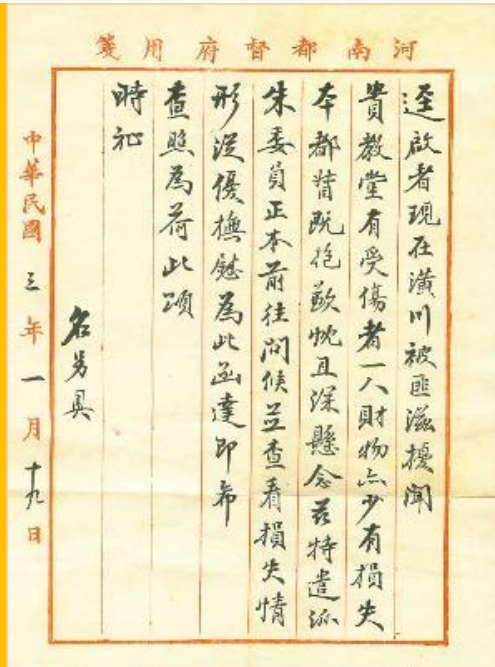 河南都督府用箋
逕啟者現在潢川被匪滋擾聞
貴教堂有受傷者一人財物亦少有損失
本都督既抱歉忱且深懸念茲特遣派
朱委員正本前往問候并查看損失情
形從優撫慰為此函達即希
查照為荷此頌
時祉
名另具
中華民國三年一月十九日